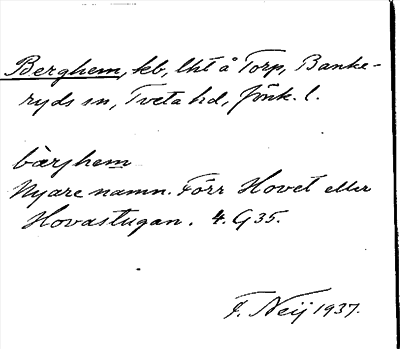 Berghem, kb, lht å Torp, Banke-
ryds sn, Tveta hd, Jönk. l.
bàrjhem
Nyare namn. Förr Hovet eller
Hovastugan. 4. G 35.
F. Neij 1937.